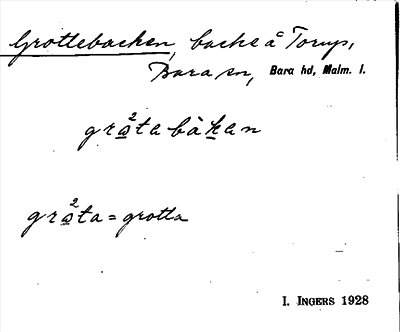 Grottebacken, backe å Torup,
Bara sn, Bara hd, Malm. l.
gr²åta bàkan
gr²åta = grotta
I. INGERS 1928